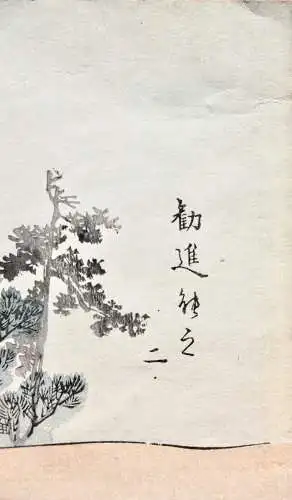 勧進能之
二